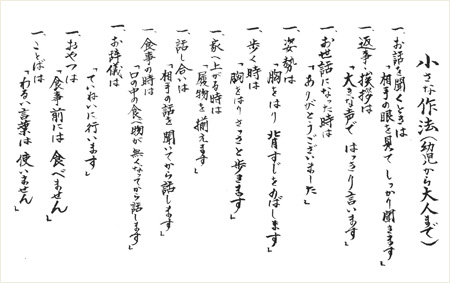 小さな作法(幼児から大人まで)
一、お話を聞くときは
「相手の眼を見てしっかり聞きます」
一、返事・挨拶は
「大きな声で はっきり言います」
一、お世話になった時は
「ありがとうございました」
一、姿勢は
「胸をはり 背すじをのばします」
一、歩く時は
「胸をはり さっさと歩きます」
一、家へ上がる時は
「履物を揃えます」
一、話し合いは
「相手の話を聞いてから話します」
一、食事の時は
「口の中の食べ物が無くなってから話します」
一、お辞儀は
「ていねいに行います」
一、おやつは
「食事前には 食べません」
一、ことばは
「わるい言葉は 使いません」